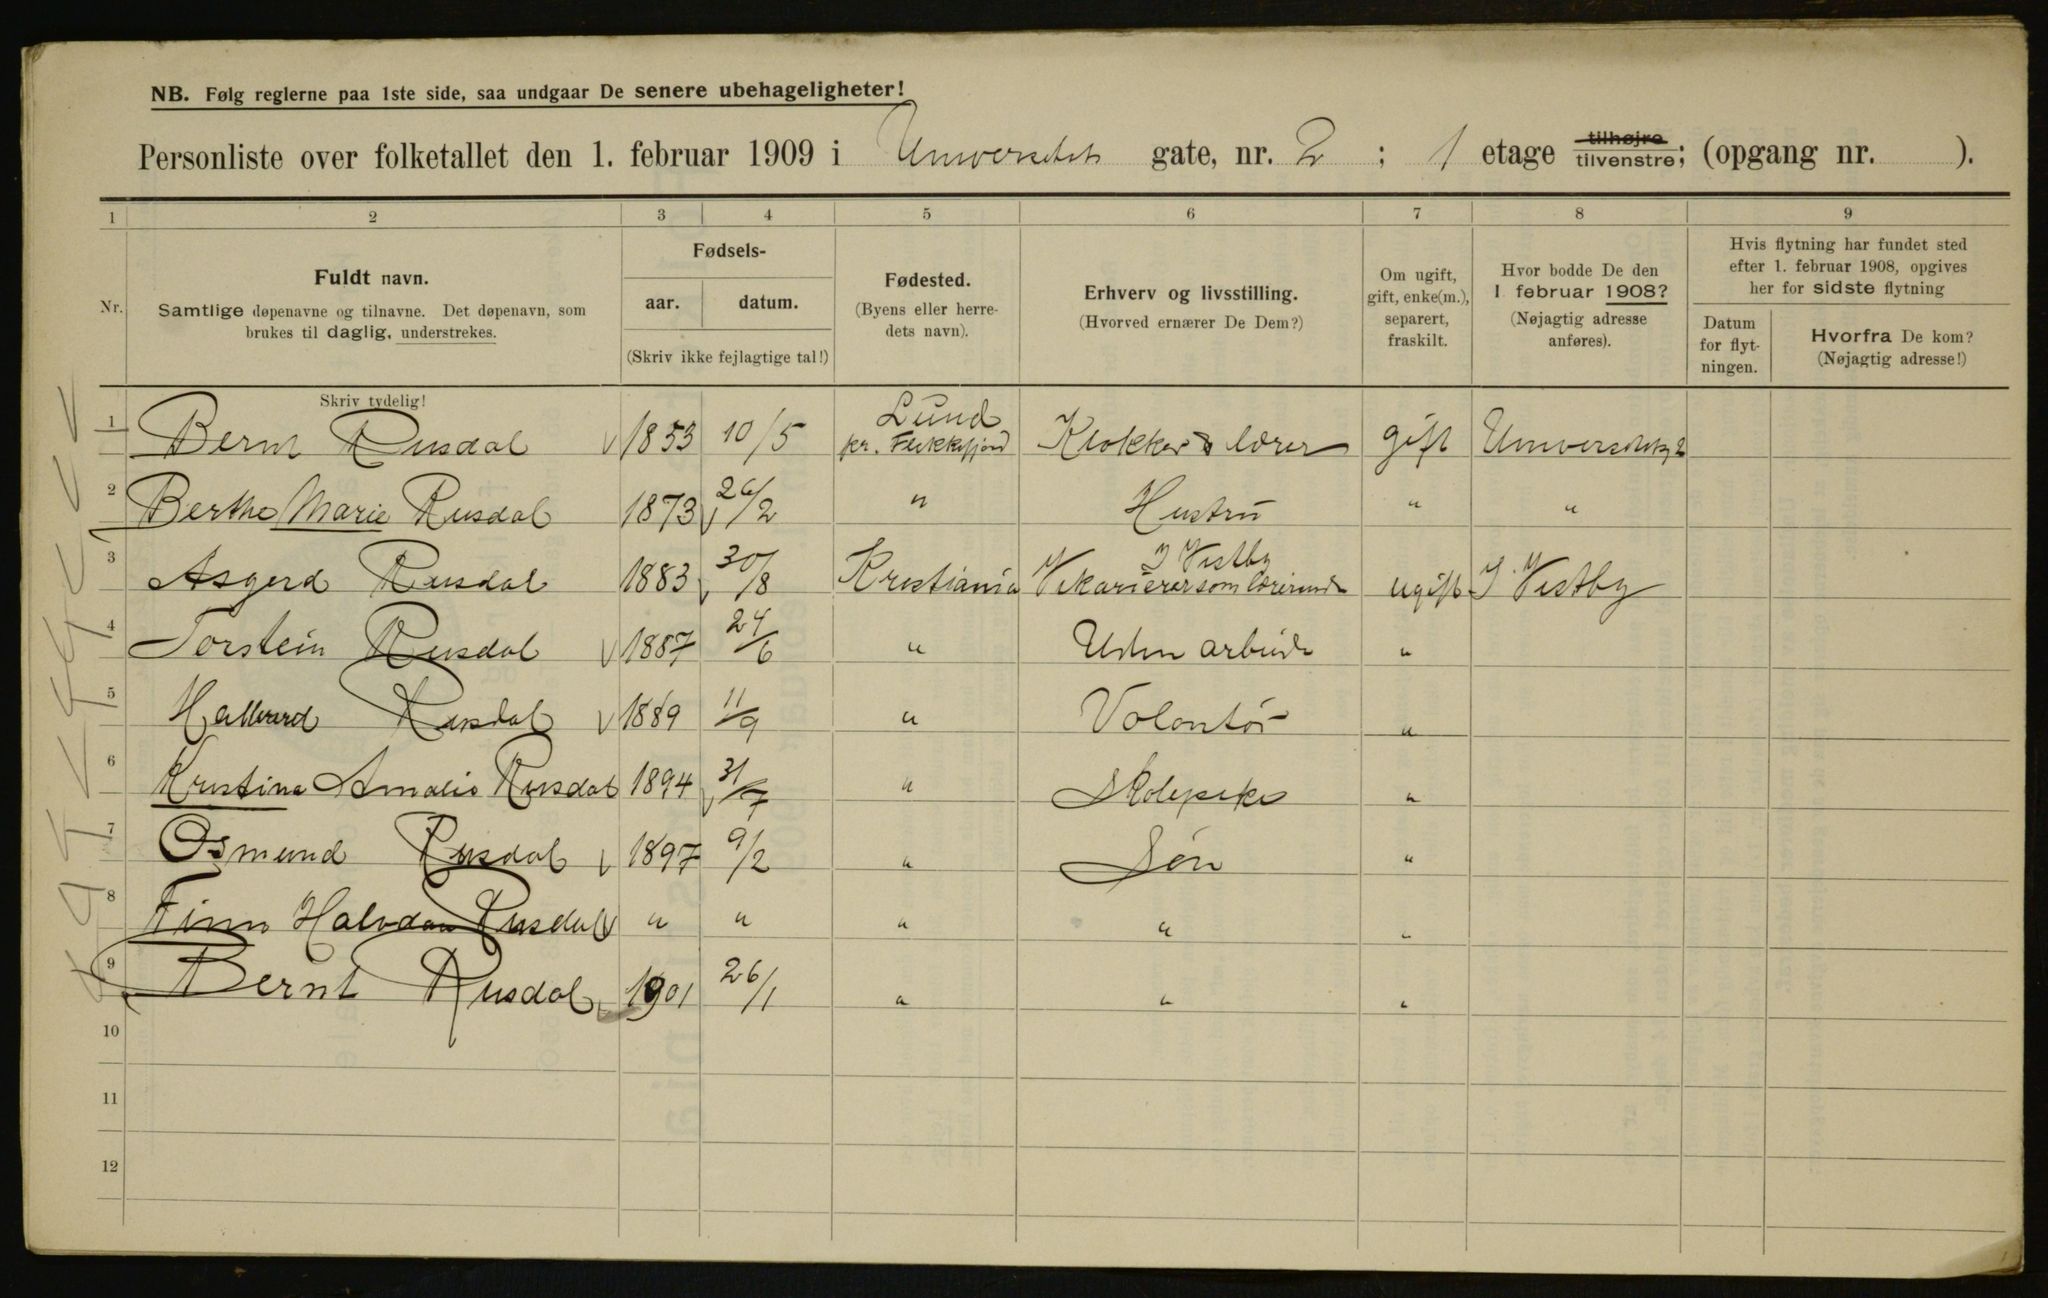 NB. Følg reglerne paa 1ste side, saa undgaar De senere ubehageligheter!
Personliste over folketallet den 1. februar 1909 i Universitets gate, nr. 2 ; 1 etage tilhøjre tilvenstre; (opgang nr. ).
1 2 3 4 5 6 7 8 9
Nr.
Fuldt navn.
Samtlige døpenavne og tilnavne. Det døpenavn, som
brukes til daglig, understrekes.
Skriv tydelig!
Fødsels-
aar. datum.
(Skriv ikke fejlagtige tal!)
Fødested.
(Byens eller herre-
dets navn).
Erhverv og livsstilling.
(Hvorved ernærer De Dem?)
Om ugift,
gift, enke(m.),
separert,
fraskilt.
Hvor bodde De den
1 februar 1908?
(Nøjagtig adresse
anføres).
Hvis flytning har fundet sted
efter 1. februar 1908, opgives
her for sidste flytning
Datum
for flyt-
ningen.
Hvorfra De kom?
(Nøjagtig adresse!)
1 Bernt Rusdal 1853 10/5 Lund pr. Flekkefjord Klokker & lærer gift Universitetsg 2
2 Berthe Marie Rusdal 1873 26/2 " Hustru " "
3 Asgerd Rusdal 1883 30/8 Kristiania Vikarierer som lærerinde I Vestby ugift I Vestby
4 Torstein Rusdal 1887 24/6 " Uden arbeide "
5 Hallvard Rusdal 1889 11/9 " Volontør "
6 Kristina Amalie Rusdal 1894 31/7 " Skolepike "
7 Osmund Rusdal 1897 9/2 " Søn "
8 Finn Halvdan Rusdal " " " " "
9 Bernt Rusdal 1901 26/1 " " "
10
11
12